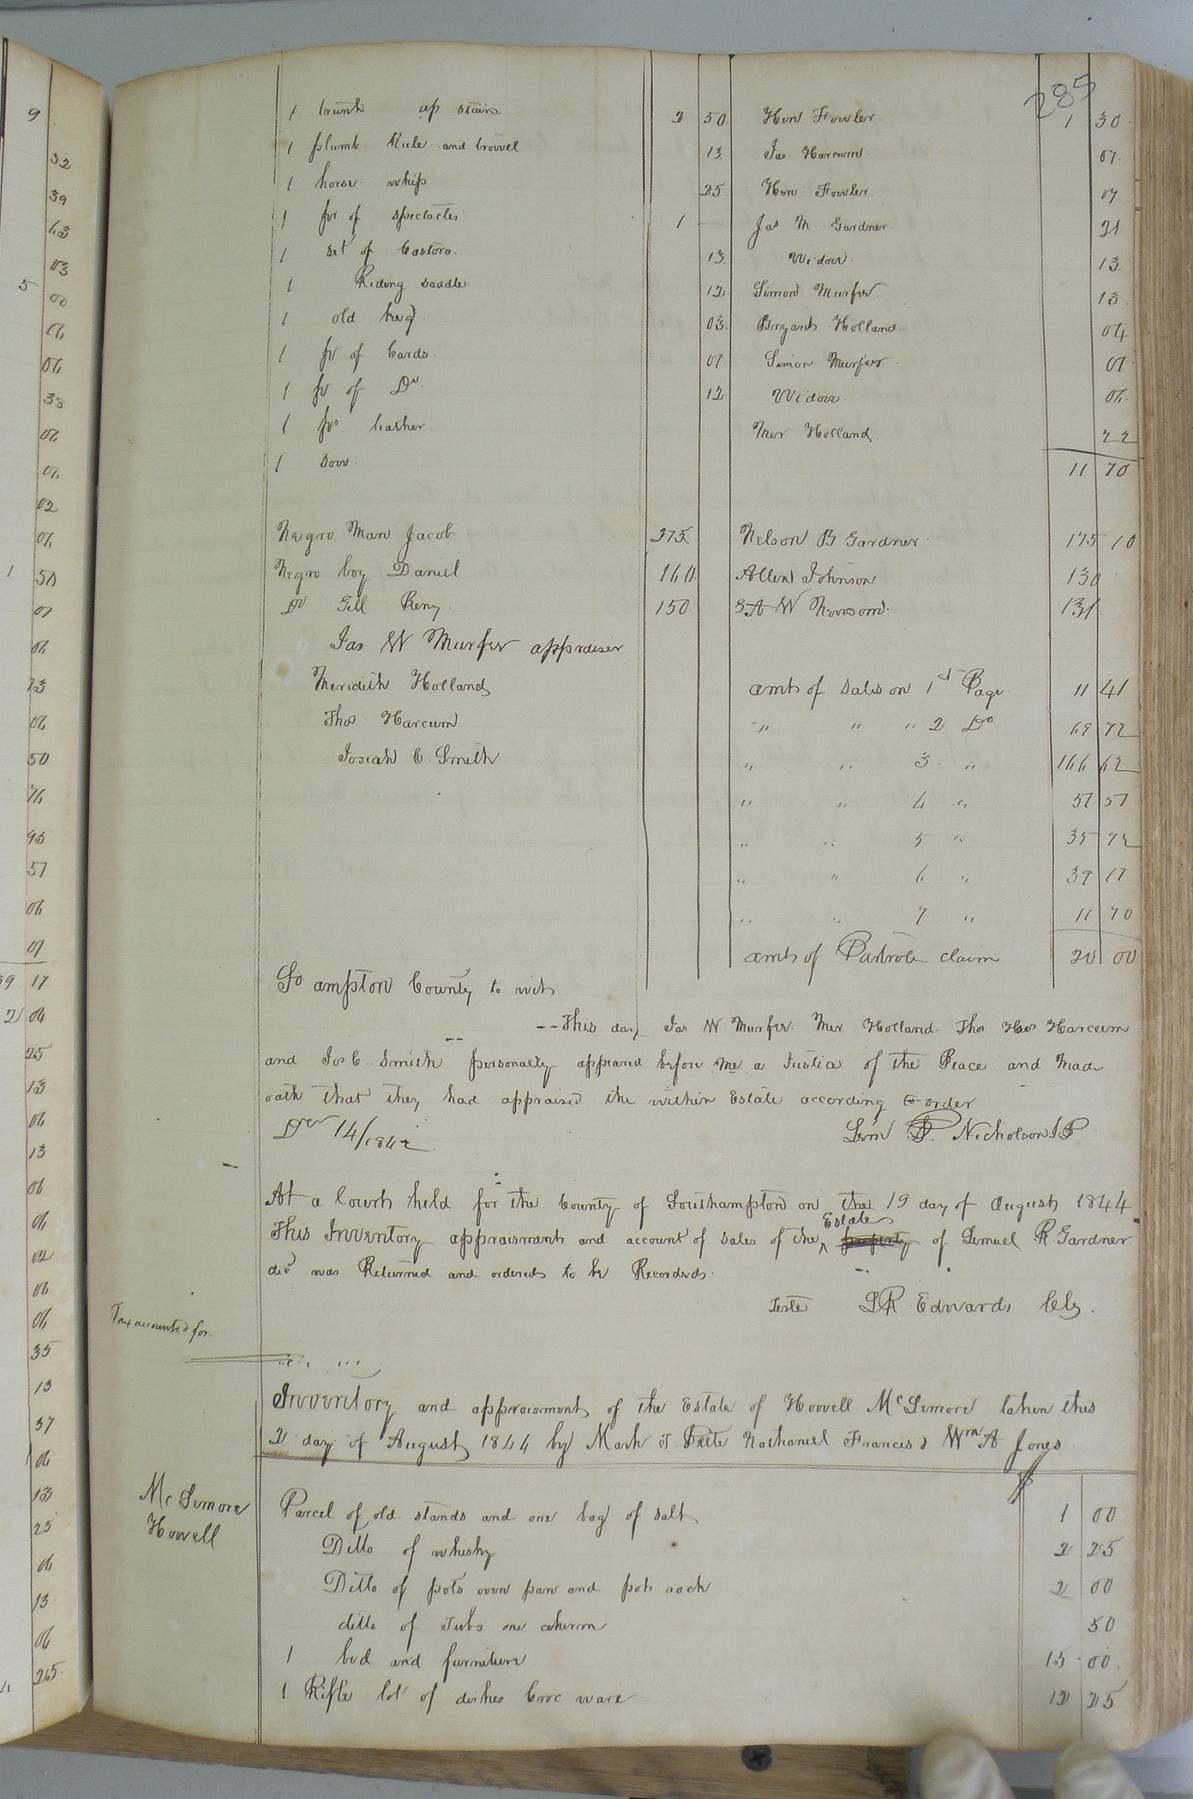 285
1 trunk up stairs 2 50 Hen Fowler 1 30
1 plumb Rule and trowel 13 Jas Harcum 07
1 horse whip 25 Hen Fowler 07
1 pr of spectacles 1 — Jas M. Gardner 21
1 set of Castors 13 Widow 13
1 Riding saddle 12 Simon Murfee 13
1 old keg 03 Bryant Holland 04
1 pr of Cards 07 Simon Murfee 07
1 pr of Do 12 Widow 06
1 ps leather Mer Holland 22
1 sow 11 70
Negro Man Jacob 375 Nelson B Gardner 175 10
Negro boy Daniel 160 Allen Johnson 130
Do Gill Reny 150 W Newsom 131
Jas W Murfee appraiser
Meridith Holland amt of sales on 1st Page 11 41
Thos Harcum " " " 2 Do 69 72
Josiah C. Smith " " 3 " 166 62
" " 4 " 57 57
" " 5 " 35 72
" " 6 " 39 17
" " 7 " 11 70
amt of Patrole claim 20 00
So ampton County to wit
This day Jas W Murfee Mer Holland Tho Harcum
and Jos C. Smith personally appeared before me a Justice of the Peace and made
oath that they had appraised the within Estate according to order
Decr 14/1842 Lem P. Nicholson J.P
At a Court held for the County of Southampton on the 19 day of August 1844
This Inventory appraisment and account of sales of the Estate property of Lemuel R Gardner
decd was Returned and ordered to be Recorded.
Teste L R Edwards Clk.
Tax accounted for.
Inventory and appraisment of the Estate of Howell McLemore taken this
2 day of August 1844 by Mark T. Nathaniel Francis & Wm A Jones
McLemore
Howell
Parcel of old stands and one bag of salt 1 00
Ditto of whisky 2 25
Ditto of pots oven pan and pot rack 2 00
ditto of Tubs one churn 50
1 bed and furniture 15 00
1 Rifle lot of dishes Croc ware 12 25